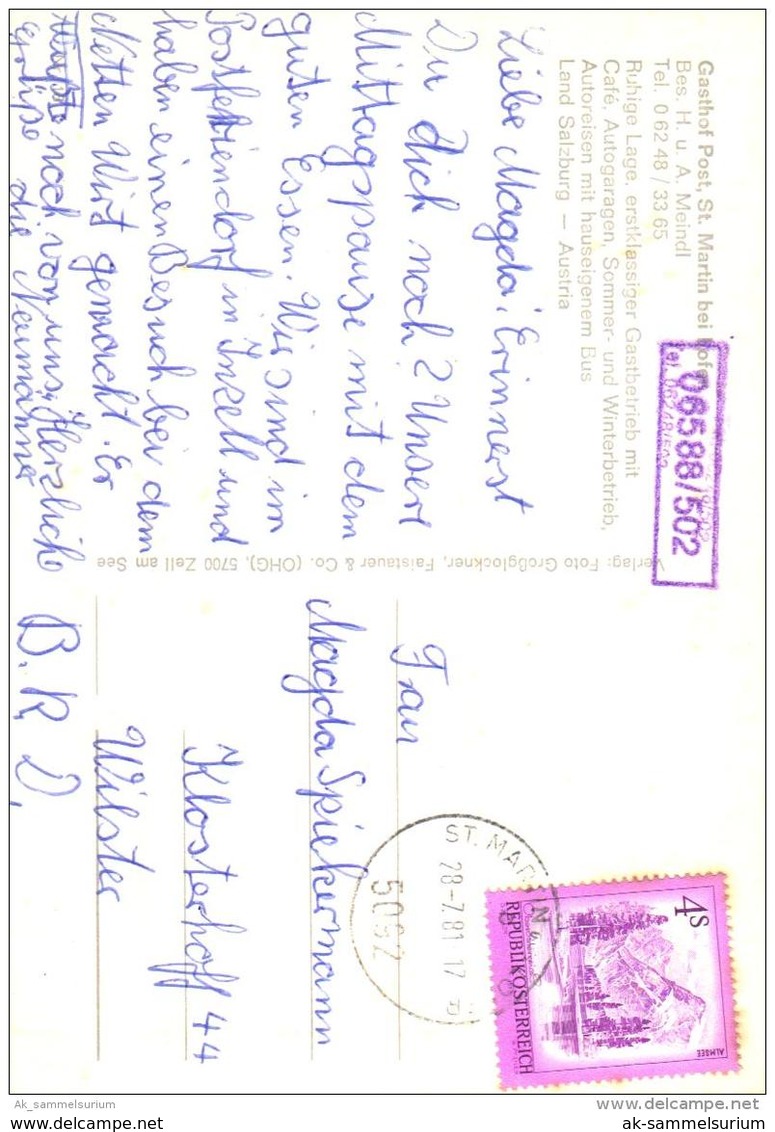 Gasthof Post, St. Martin bei Lofer
Bes. H. u. A. Meindl
Tel. 0 62 48 / 33 65
Ruhige Lage, erstklassiger Gastbetrieb mit
Café, Autogaragen, Sommer- und Winterbetrieb,
Autoreisen mit hauseigenem Bus
Land Salzburg — Austria
06588/502
Liebe Magda! Erinnerst
Du Dich noch? Unsere
Mittagspause mit dem
guten Essen. Wir sind im
Postferiendorf in Inzell und
haben einen Besuch bei dem
Netten Wirt gemacht. Er
wußte noch von uns, Herzliche
Grüße die Neumänner
Verlag: Foto Großglockner, Faistauer & Co. (OHG), 5700 Zell am See
Frau
Magda Spiekermann
Klosterhoff 44
Wilster
B.R.D.
ST. MARTIN
28-7.81 17
5092
4S
REPUBLIK ÖSTERREICH
ALMSEE
Ak_sammelsurium
delcampe.net
ak-sammelsurium